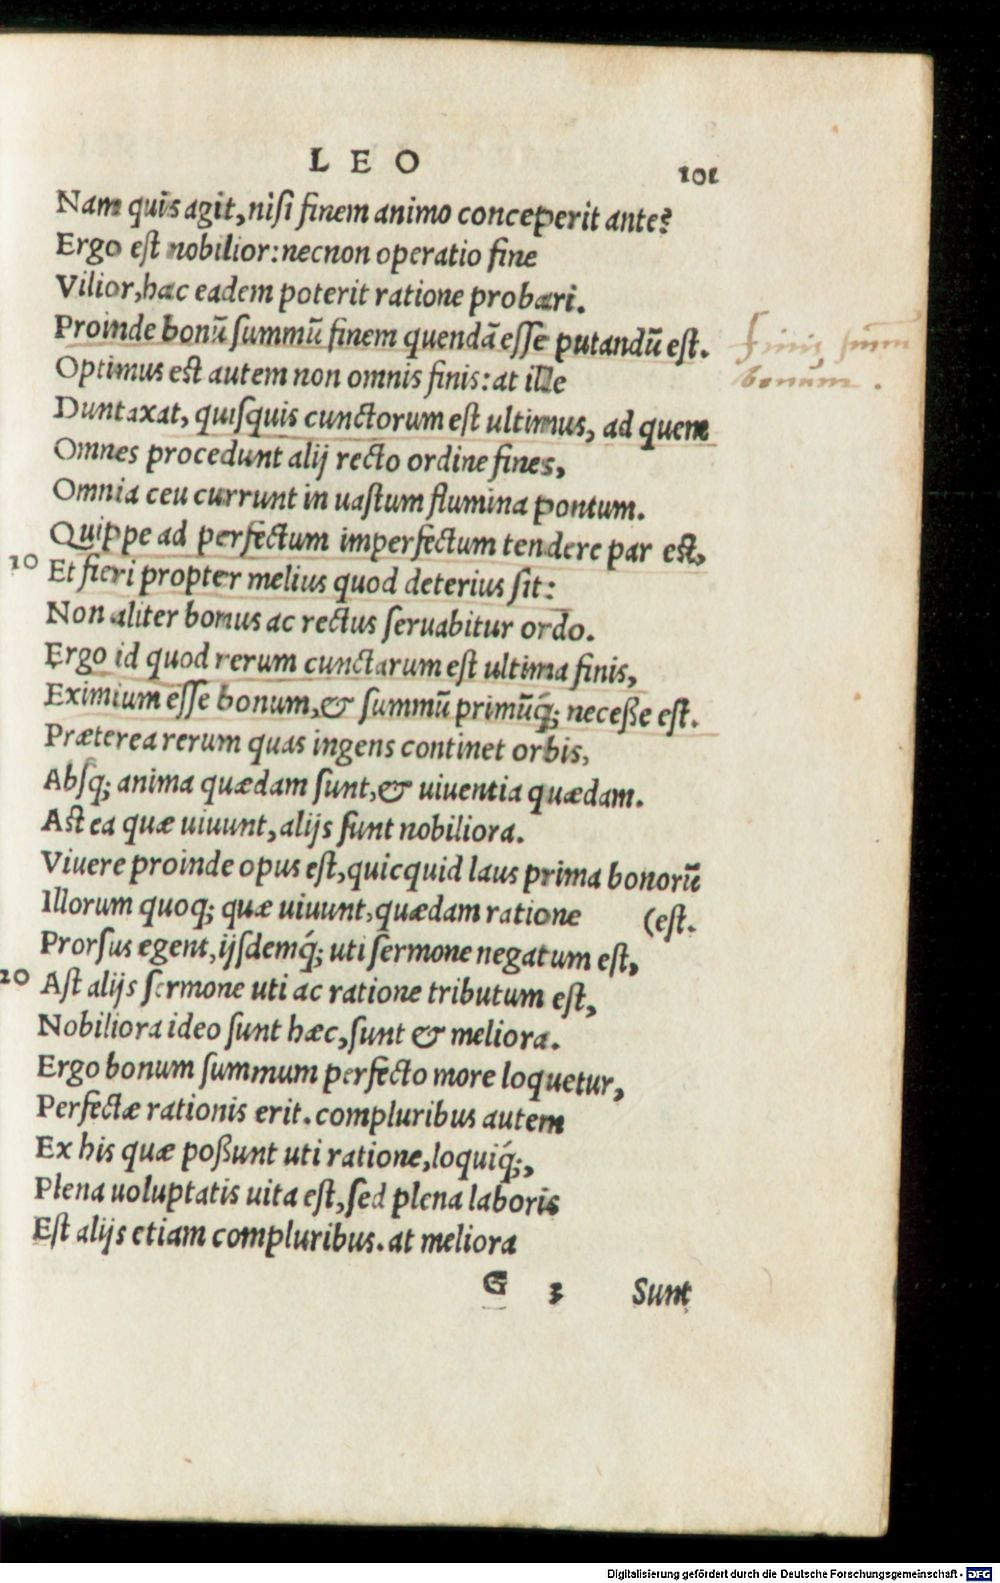 LEO 101
Nam quis agit, nisi finem animo conceperit ante?
Ergo est nobilior: necnon operatio fine
Vilior, hac eadem poterit ratione probari.
Proinde bonū summū finem quendā esse putandū est.
Finis summ
bonum.
Optimus est autem non omnis finis: at ille
Duntaxat, quisquis cunctorum est ultimus, ad quem
Omnes procedunt alij recto ordine fines,
Omnia ceu currunt in uastum flumina pontum.
Quippe ad perfectum imperfectum tendere par est,
10 Et fieri propter melius quod deterius sit:
Non aliter bonus ac rectus seruabitur ordo.
Ergo id quod rerum cunctarum est ultima finis,
Eximium esse bonum, & summū primūq́; necesse est.
Præterea rerum quas ingens continet orbis,
Absq; anima quædam sunt, & uiuentia quædam.
Ast ea quæ uiuunt, alijs sunt nobiliora.
Viuere proinde opus est, quicquid laus prima bonorū
Illorum quoq; quæ uiuunt, quædam ratione (est.
Prorsus egent, ijsdemq́; uti sermone negatum est,
20 Ast alijs sermone uti ac ratione tributum est,
Nobiliora ideo sunt hæc, sunt & meliora.
Ergo bonum summum perfecto more loquetur,
Perfectæ rationis erit. compluribus autem
Ex his quæ possunt uti ratione, loquiq́;,
Plena uoluptatis uita est, sed plena laboris
Est alijs etiam compluribus. at meliora
G 3 Sunt
Digitalisierung gefördert durch die Deutsche Forschungsgemeinschaft - DFG